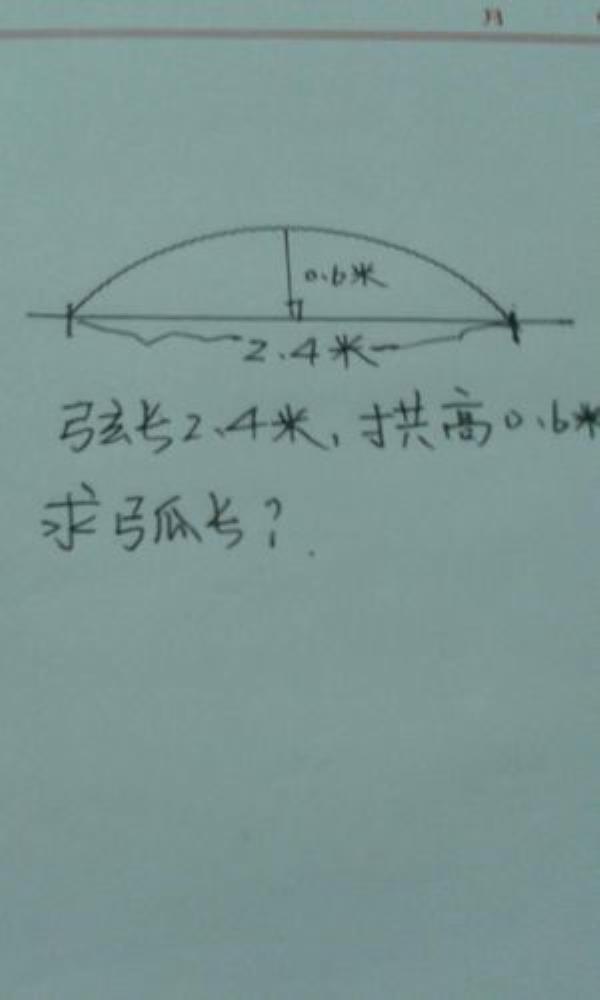 月
0.6米
2.4米
弦长2.4米，拱高0.6米
求弧长？